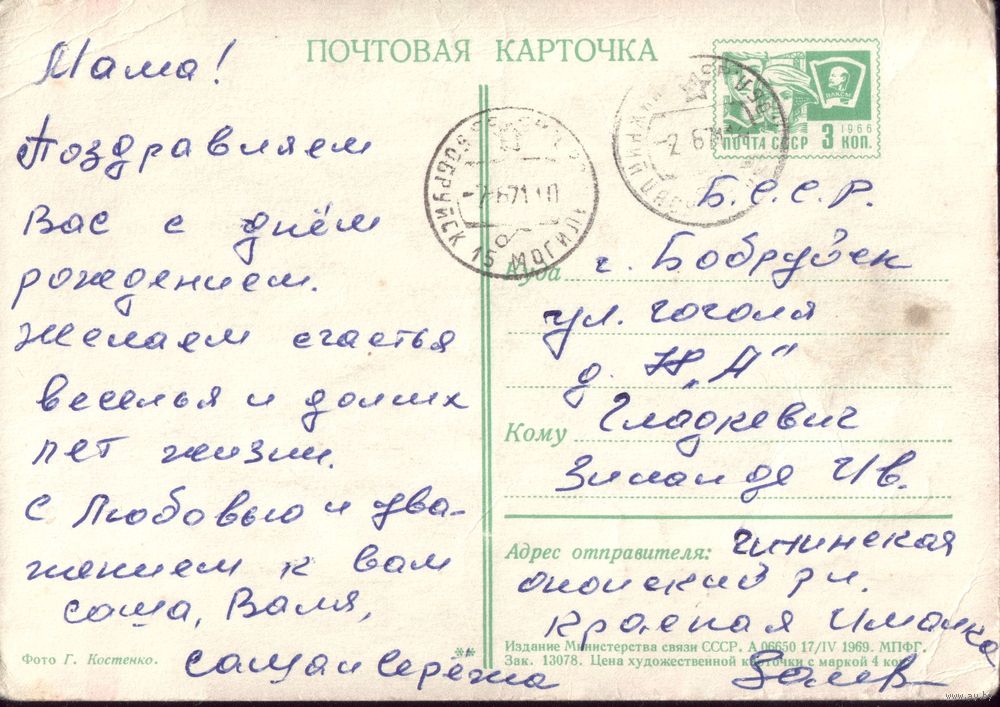 ПОЧТОВАЯ КАРТОЧКА
Мама!
Поздравляем
Вас с днём
рождением.
Желаем счастья
веселья и долгих
лет жизни.
С Любовью и ува-
жением к вам
Саша, Валя,
Саша и Серёжа
Фото Г. Костенко.
**
ВЛКСМ
1966
ПОЧТА СССР 3 КОП.
БОБРУЙСК 15 МОГИЛ
Б.С.С.Р.
Куда г. Бобруйск
ул. Гоголя
д. „А"
Кому Гладкевич
Зинаиде Ив.
Адрес отправителя: Читинская
ононский р-н.
Красная Ималка
Издание Министерства связи СССР. А 06650 17/IV 1969. МПФГ.
Зак. 13078. Цена художественной карточки с маркой 4 коп.
www.ay.by